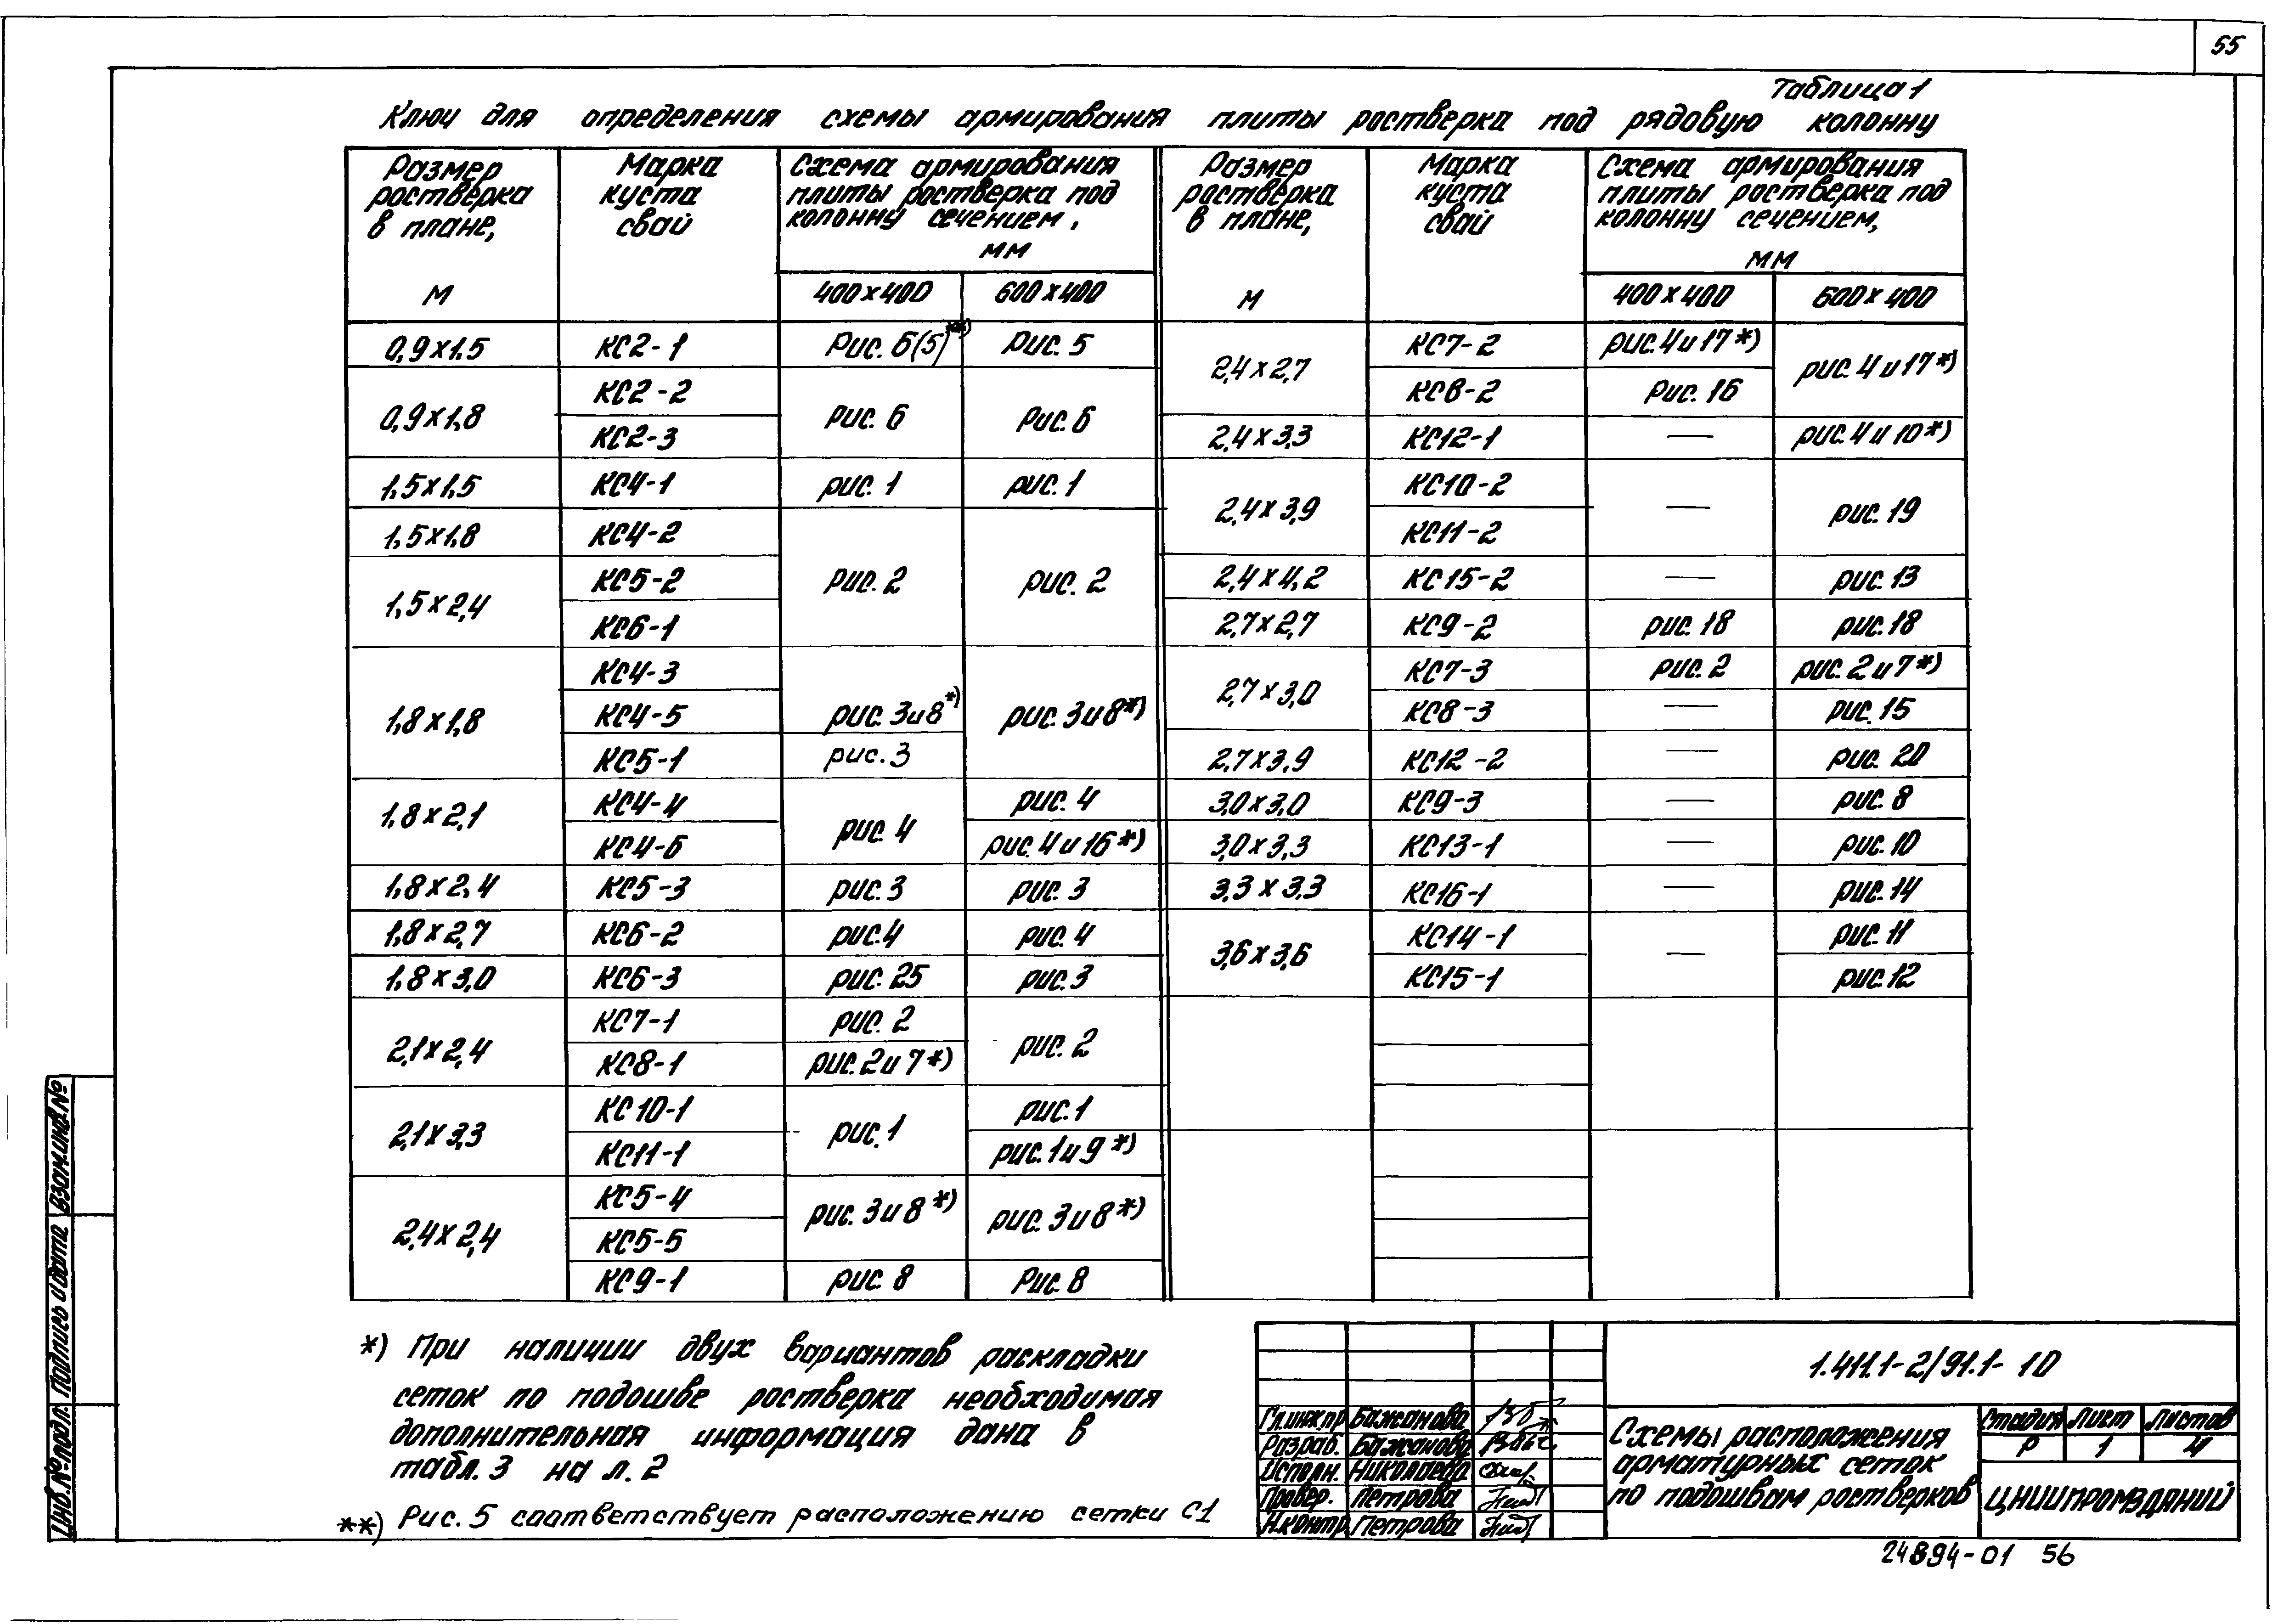 55
Таблица 1
Ключ для определения схемы армирования плиты ростверка под рядовую колонну
Размер ростверка в плане, м
Марка куста свай
Схема армирования плиты ростверка под колонну сечением, мм
400х400
600х400
Размер ростверка в плане, м
Марка куста свай
Схема армирования плиты ростверка под колонну сечением, мм
400х400
600х400
0,9х1,5 КС2-1 Рис. 6(5)**) Рис. 5
0,9х1,8 КС2-2 рис. 6 Рис. 6
КС2-3
1,5х1,5 КС4-1 рис. 1 рис. 1
1,5х1,8 КС4-2 рис. 2 рис. 2
1,5х2,4 КС5-2
КС6-1
1,8х1,8 КС4-3 рис. 3и8*) рис. 3и8*)
КС4-5
КС5-1 рис. 3
1,8х2,1 КС4-4 рис. 4 рис. 4
КС4-6 рис. 4 и 16*)
1,8х2,4 КС5-3 рис. 3 рис. 3
1,8х2,7 КС6-2 рис. 4 рис. 4
1,8х3,0 КС6-3 рис. 25 рис. 3
2,1х2,4 КС7-1 рис. 2 рис. 2
КС8-1 рис. 2и 7*)
2,1х3,3 КС10-1 рис. 1 рис. 1
КС11-1 рис. 1и9*)
2,4х2,4 КС5-4 рис. 3и8*) рис. 3и8*)
КС5-5
КС9-1 рис. 8 Рис. 8
2,4х2,7 КС7-2 рис. 4 и 17*) рис. 4 и 17*)
КС8-2 Рис. 16
2,4х3,3 КС12-1 — рис. 4 и 10*)
2,4х3,9 КС10-2 — рис. 19
КС11-2
2,4х4,2 КС15-2 — рис. 13
2,7х2,7 КС9-2 рис. 18 рис. 18
2,7х3,0 КС7-3 рис. 2 рис. 2 и 7*)
КС8-3 — рис. 15
2,7х3,9 КС12-2 — рис. 20
3,0х3,0 КС9-3 — рис. 8
3,0х3,3 КС13-1 — рис. 10
3,3х3,3 КС16-1 — рис. 14
3,6х3,6 КС14-1 — рис. 11
КС15-1 рис. 12
*) При наличии двух вариантов раскладки
сеток по подошве ростверка необходимая
дополнительная информация дана в
табл. 3 на л. 2
**) Рис. 5 соответствует расположению сетки С1
Инв.№ подл. Подпись и дата Взам.инв.№
Гл.инж.пр Бажанова
Разраб. Бажанова
Исполн. Николаева
Провер. Петрова
Н.контр. Петрова
1.411.1-2/91.1- 10
Схемы расположения
арматурных сеток
по подошвам ростверков
Стадия Лист Листов
Р 1 4
ЦНИИПРОМЗДАНИЙ
24894-01 56